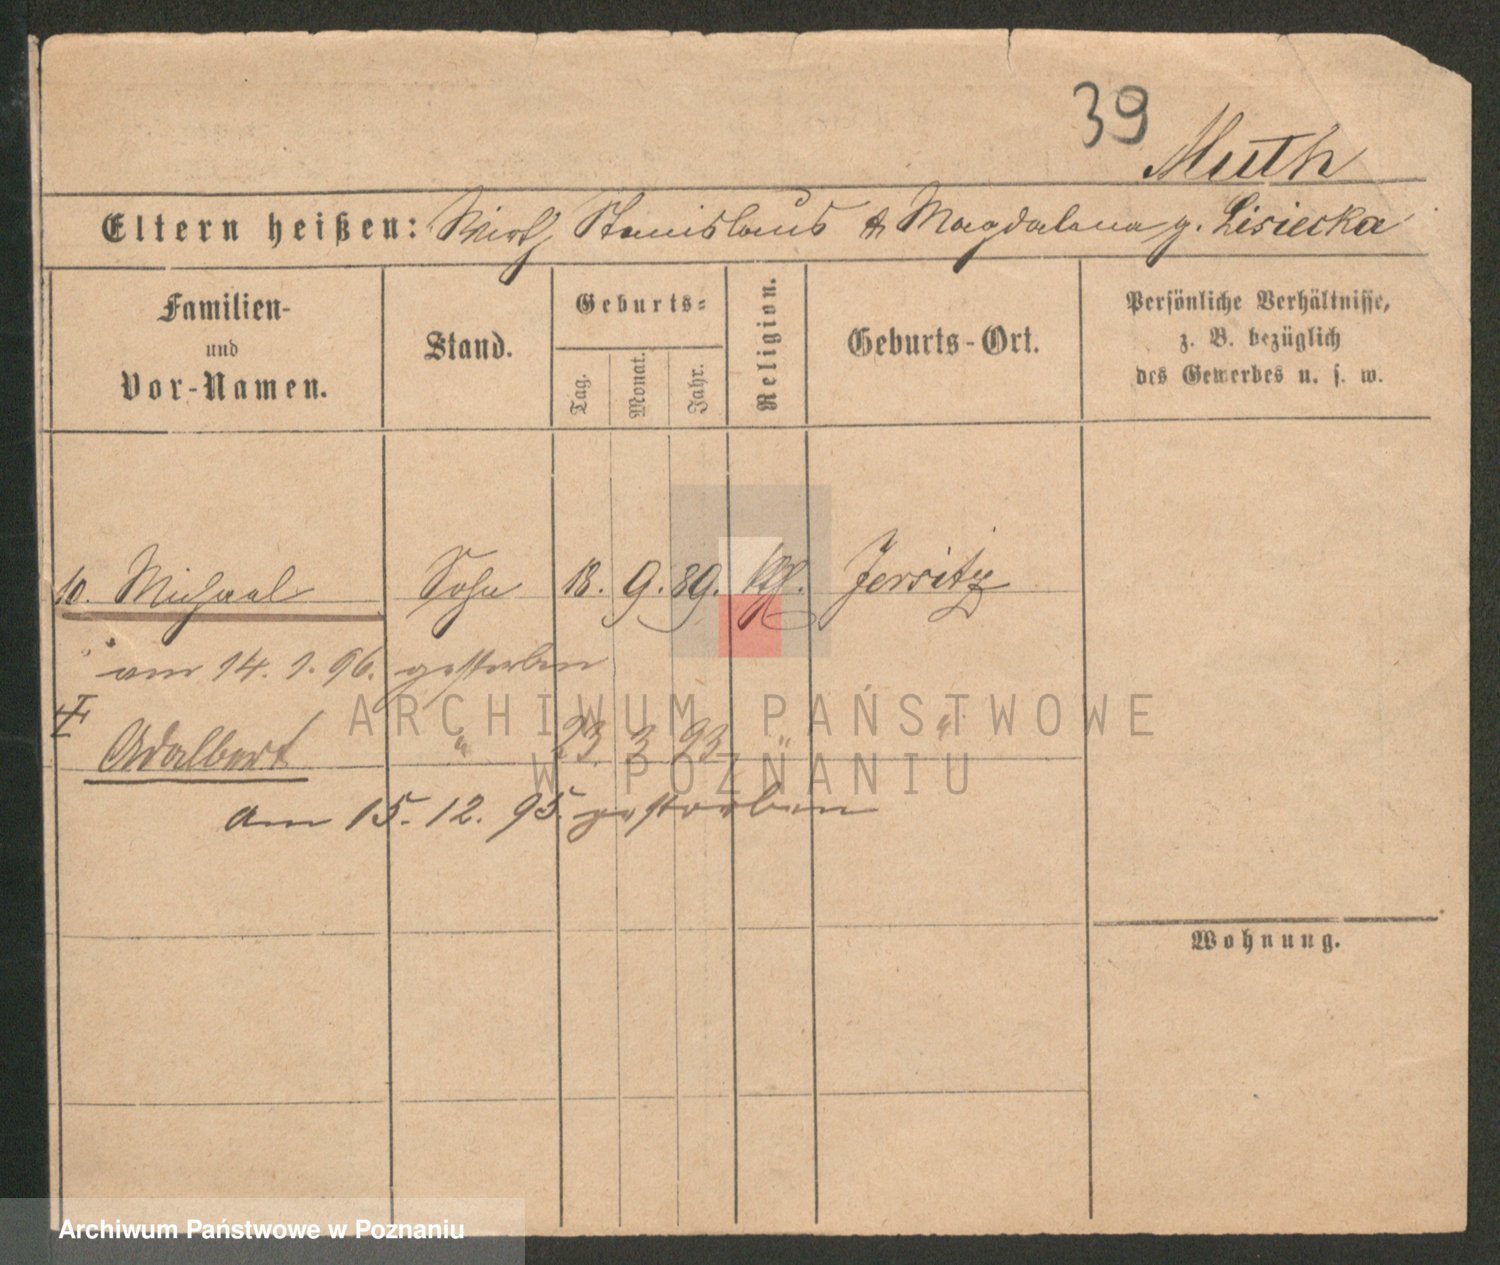 39
Muth
Eltern heißen: Wirth Stanislaus & Magdalena g. Lisiecka
Familien-
und
Vor-Namen.
Stand.
Geburts-
Tag.
Monat.
Jahr.
Religion.
Geburts-Ort.
Persönliche Verhältnisse,
z. B. bezüglich
des Gewerbes u. s. w.
10. Michael Sohn 18. 9. 89. kth. Jersitz
am 14. 1. 96. gestorben
Adalbert " 23. 3. 93. " "
am 15. 12. 95. gestorben
Wohnung.
ARCHIWUM PAŃSTWOWE
W POZNANIU
Archiwum Państwowe w Poznaniu